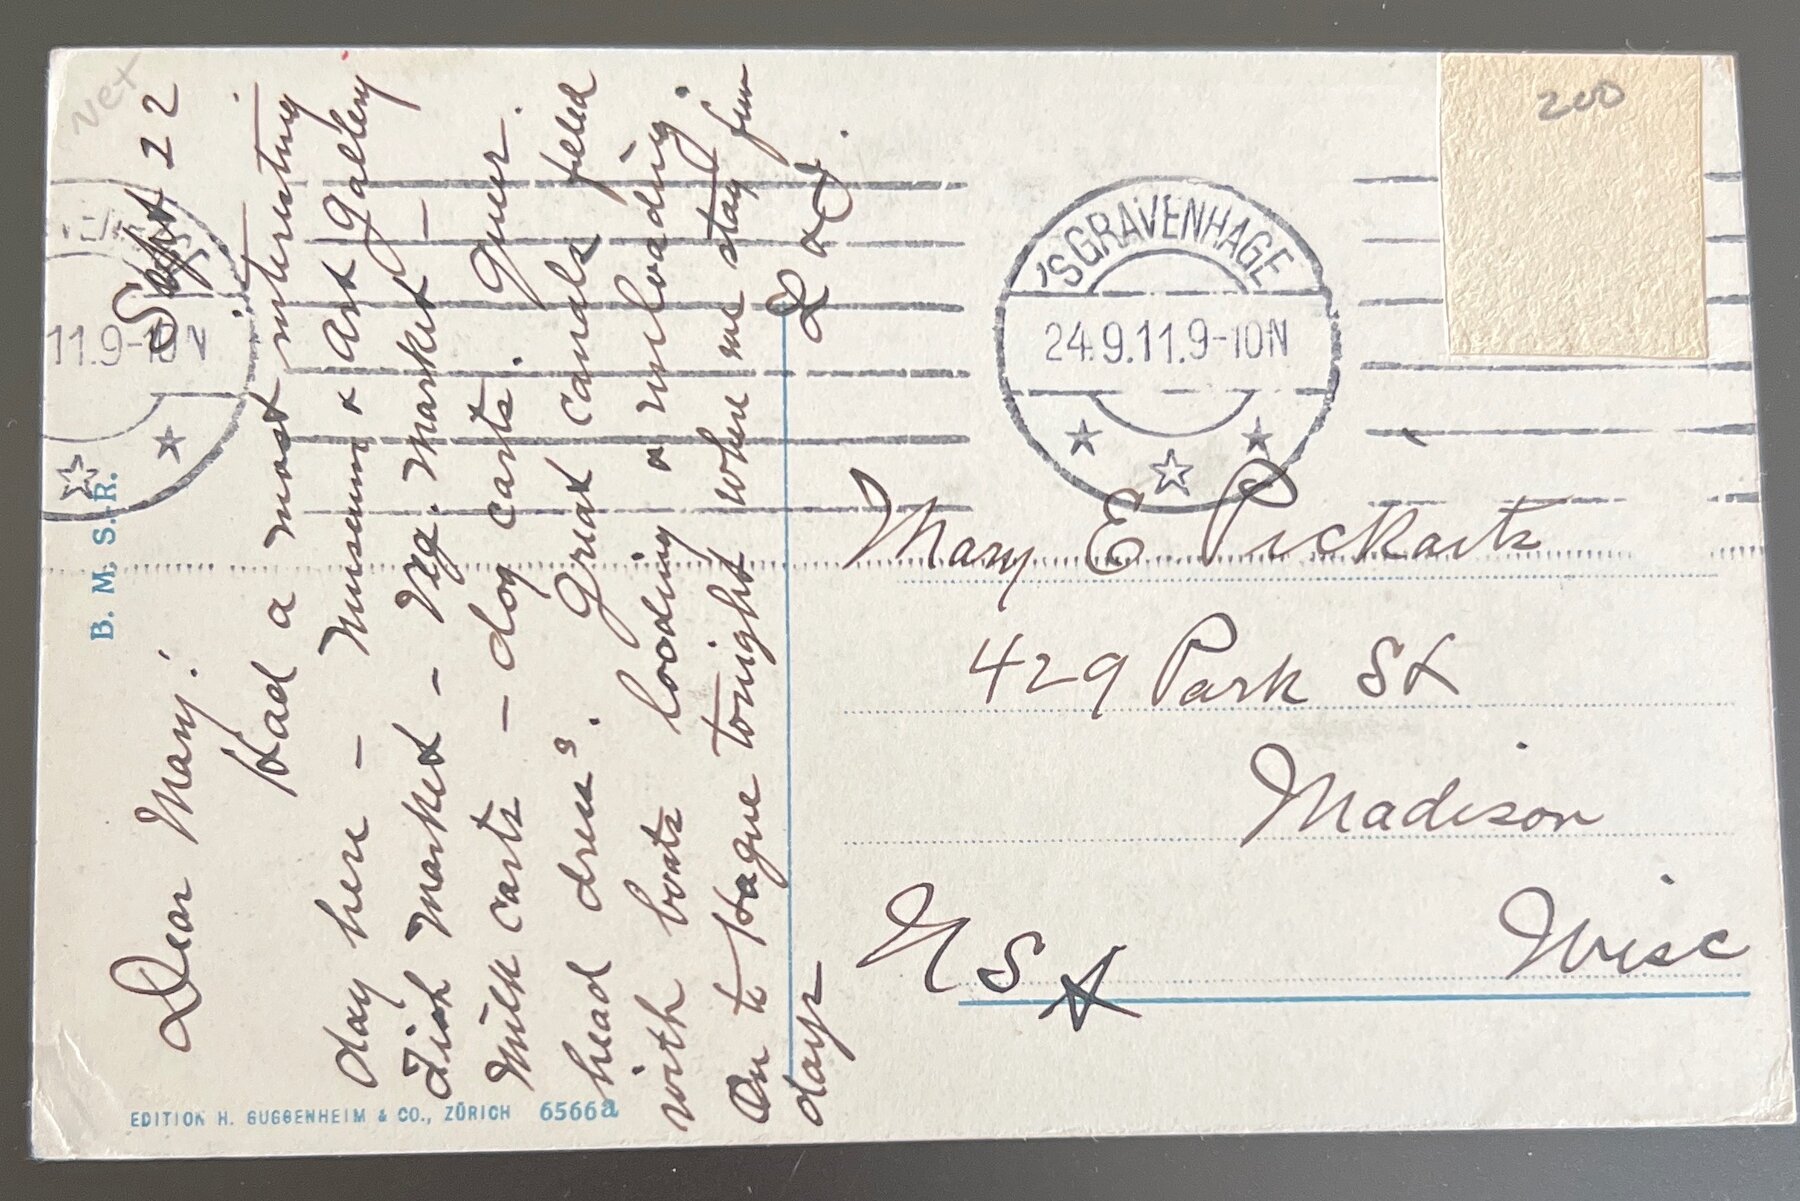 Net
Sept 22
Dear Mary:
Had a most interesting
day here - Museum & Art Gallery
Fish market - Veg. market -
Milk carts - dog carts. Queer
head dress. Great canals filled
with boats loading & unloading.
On to Hague tonight where we stay few
days
11.9-10N
B. M. S.-R.
EDITION H. GUGGENHEIM & CO., ZÜRICH 6566a
200
'SGRAVENHAGE
24.9.11.9-10N
Mary E Pickarts
429 Park St
Madison
Wisc
USA